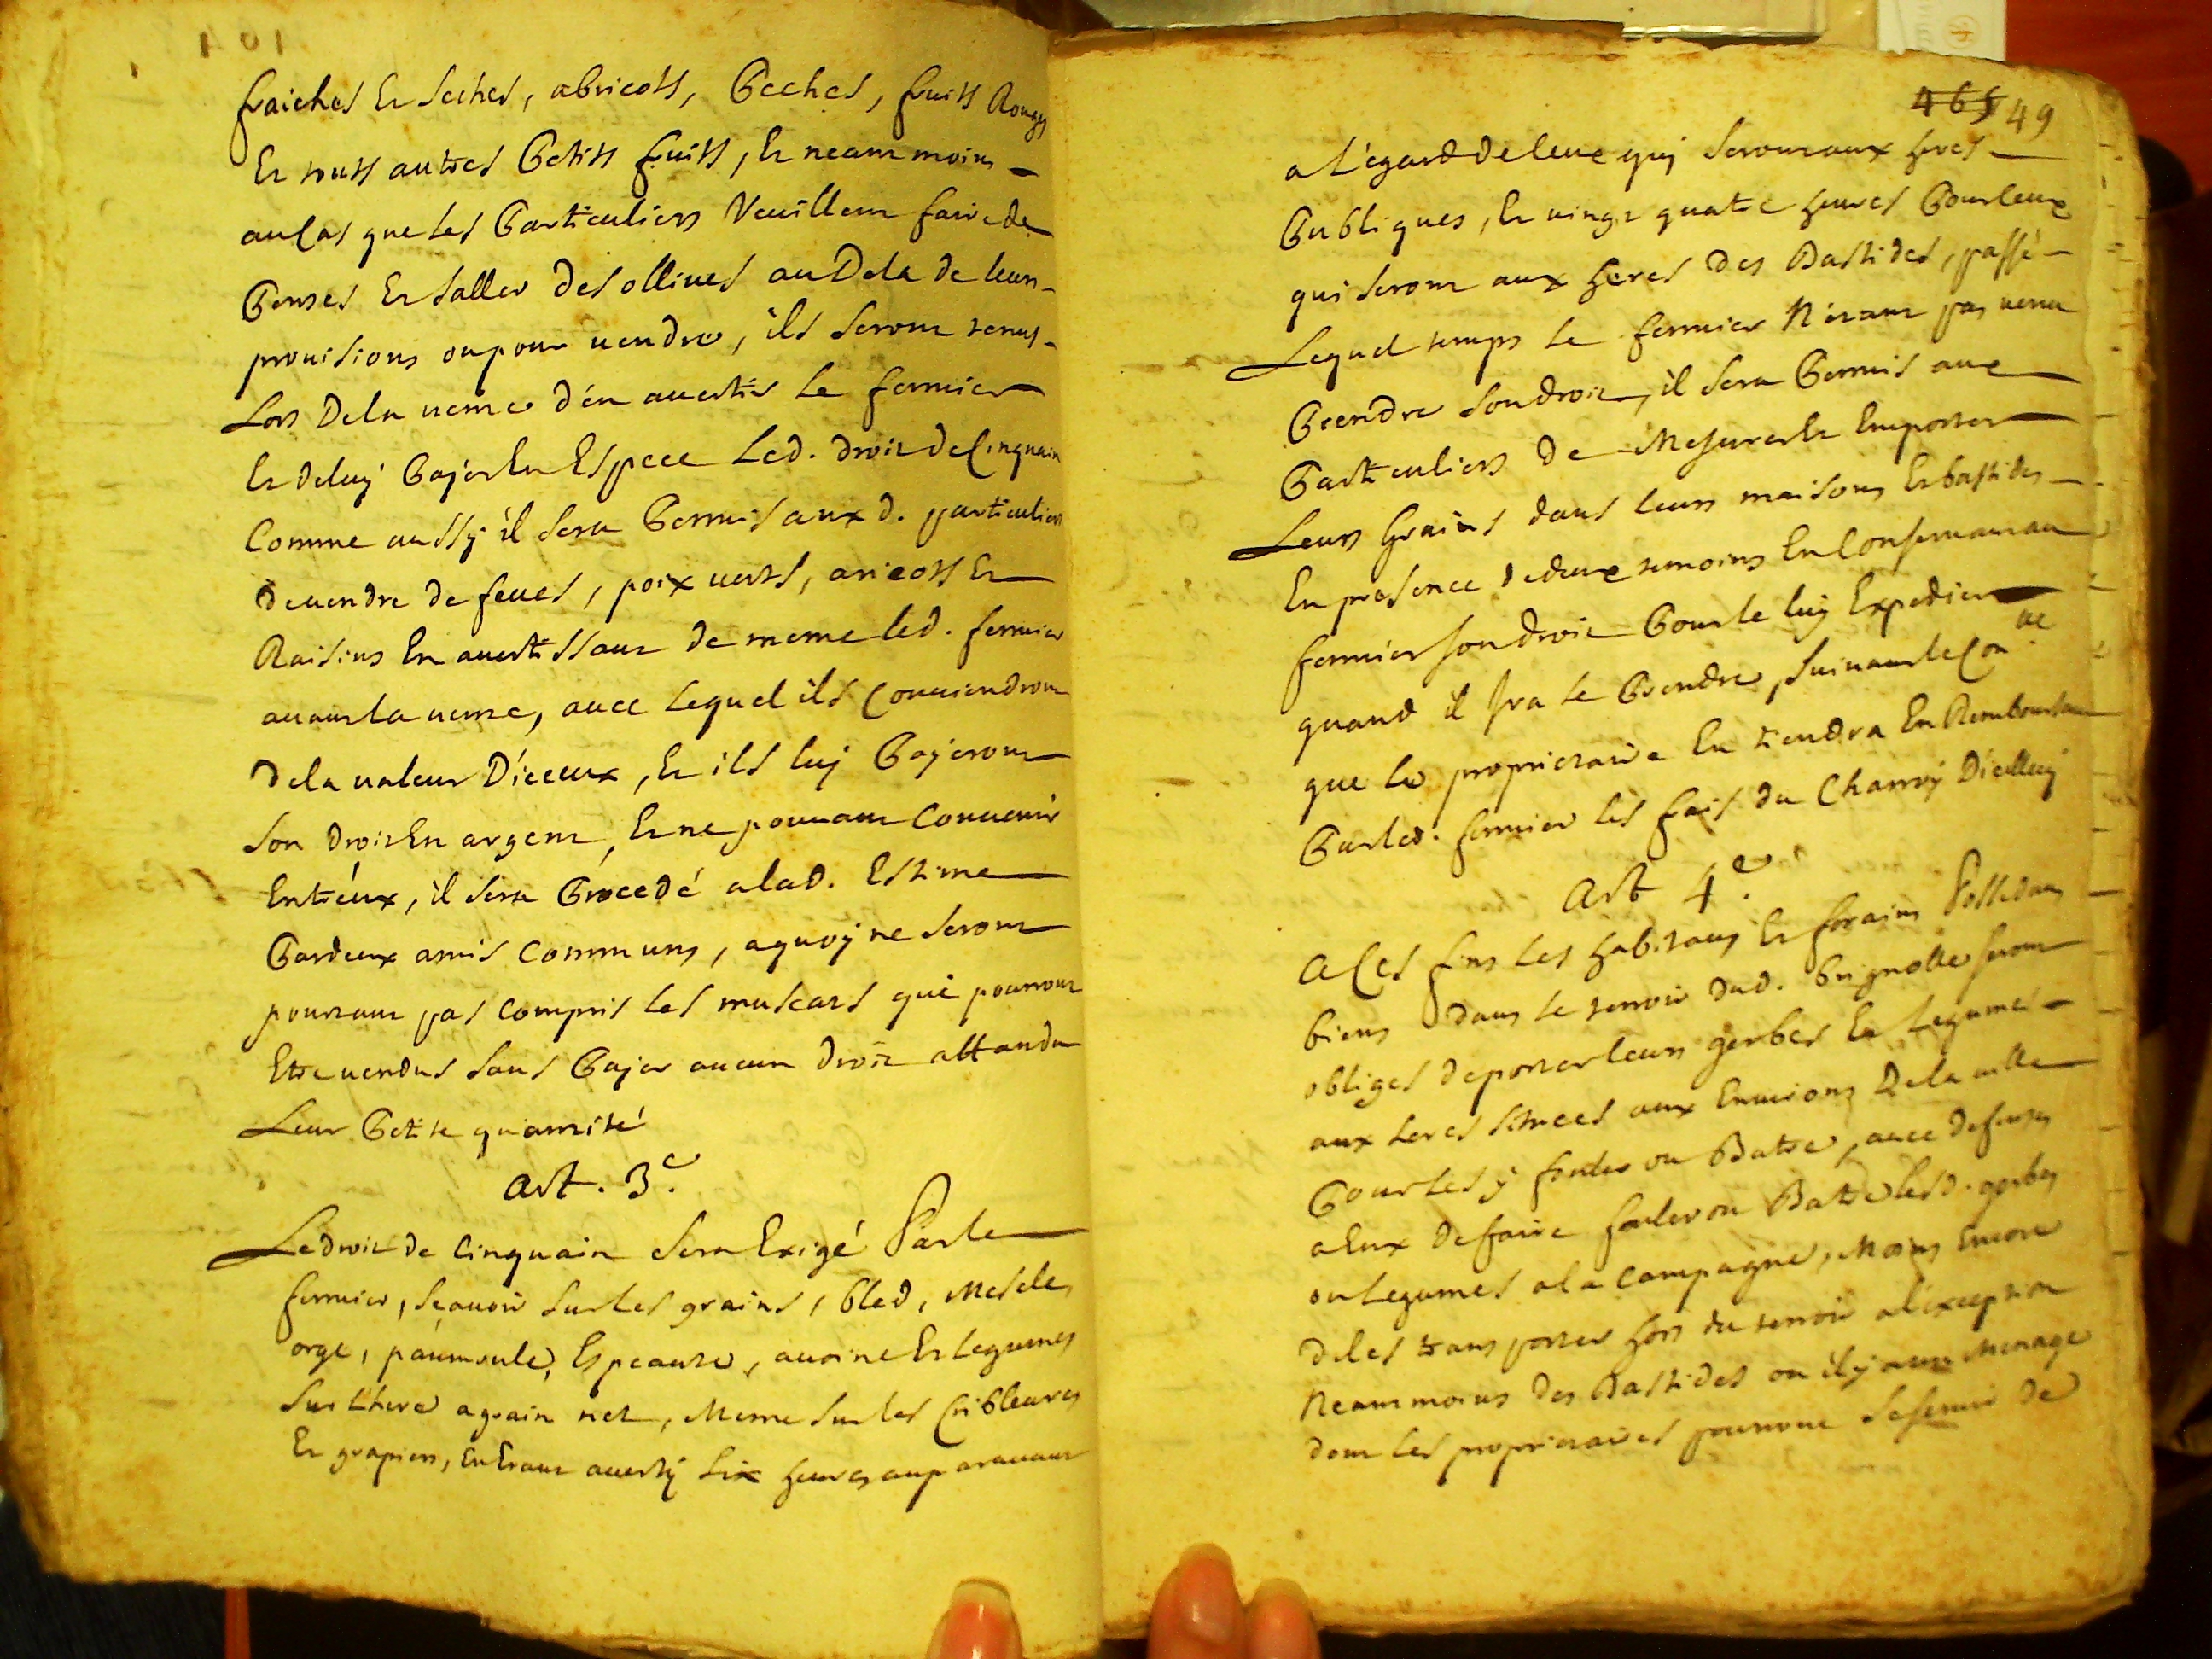 fraiches Et seches, abricots, Peches, fruits Rouges
Et touts autres Petits fruits, Et neanmoins
au Cas que les Particuliers Veuillent faire de
Penses Et saller des ollives au Dela de leurs
provisions ou pour vendre, ils seront tenus
Lors Dela vente d'en avertir le fermier
Et de luy Payer En Espece Led. droit de Cinquain
Comme aussy il sera Permis aux d. particuliers
de vendre de feves, poix verts, aricots Et
Raisins En avertissant de meme led. fermier
avant la vente, avec Lequel ils Conviendront
Dela valeur D'iceux, Et ils luy Payeront
Son droit En argent, Et ne pouvant Convenir
Entr'eux, il sera Procedé a lad. Estime
Par deux amis Communs, a quoy ne seront
pourtant pas Compris les muscats qui pourront
Etre vendus sans Payer aucun droit attandu
Leur Petite quantité
Art. 3e.
Le droit de Cinquain sera Exigé Par le
fermier, Sçavoir sur les grains, bled, Mescle,
orge, paumoule, Espeaute, avoine Et Legumes
Sur l'here a grain net, Meme sur les Cribleures
Et grapiers, En Etant averty six heures auparavant
465 49
a L'egard de leux quy seront aux heres
Publiques, Et vingt quatre heures Pour Ceux
qui seront aux heres des Bastides, passé
Lequel temps le fermier N'étant pas venu
Prendre son droit, il sera Permis aux
Particuliers de Mesurer Et Emporter
Leurs Grains dans leurs maisons Et bastides
En presence de deux temoins En Conservant au
fermier son droit Pour le luy Expedier
quand il Ira le Prendre, suivant le Con.ue
que le proprietaire En tiendra En Remboursant
Par led. fermier les frais du Charroy D'icelluy
Art 4e.
A Ces fins les habitans Et forains Possedans
biens dans le terroir dud. brignolle seront
obliges de porter leurs gerbes Et Legumes
aux heres scituees aux Environs Dela ville
Pour les y fouler ou Batre, avec defenses
a Eux de faire fouler ou Batre lesd. gerbes
ou Legumes a la Campagne, Moins Encore
de les transporter hors du terroir a l'exception
Neanmoins des Bastides ou il y aura Menage
dont les proprietaires pourront se servir de